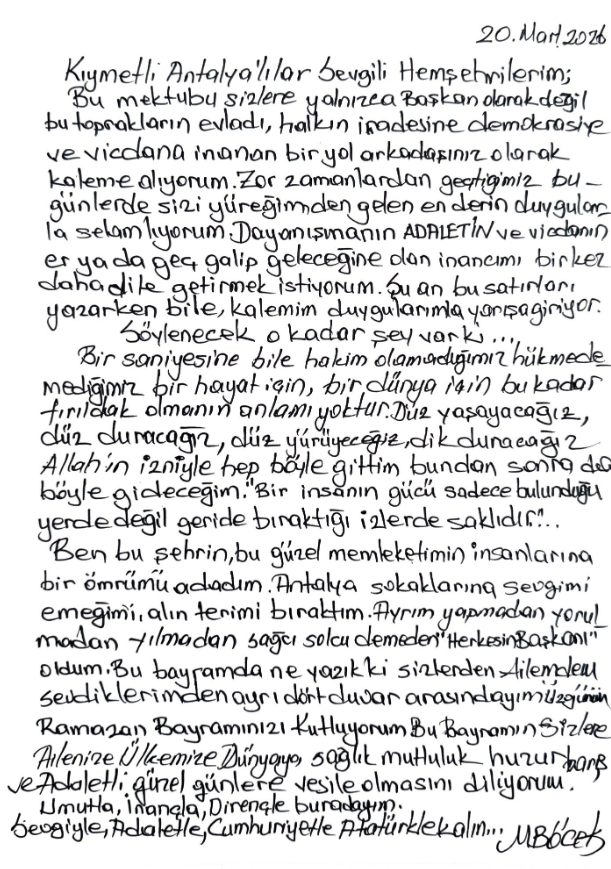 20.Mart.2026
Kıymetli Antalya'lılar Sevgili Hemşehrilerim;
Bu mektubu sizlere yalnızca Başkan olarak değil
bu toprakların evladı, halkın iradesine demokrasiye
ve vicdana inanan bir yol arkadaşınız olarak
kaleme alıyorum. Zor zamanlardan geçtiğimiz bu-
günlerde sizi yüreğimden gelen en derin duygular-
la selamlıyorum. Dayanışmanın ADALETİN ve vicdanın
er ya da geç galip geleceğine olan inancımı bir kez
daha dile getirmek istiyorum. Şu an bu satırları
yazarken bile, kalemim duygularımla yarışa giriyor.
Söylenecek o kadar şey var ki...
Bir saniyesine bile hakim olamadığımız hükmede
mediğimiz bir hayat için, bir dünya için bu kadar
fırıldak olmanın anlamı yoktur. Düz yaşayacağız,
düz duracağız, düz yürüyeceğiz, dik duracağız
Allah'ın izniyle hep böyle gittim bundan sonra da
böyle gideceğim. "Bir insanın gücü sadece bulunduğu
yerde değil geride bıraktığı izlerde saklıdır"..
Ben bu şehrin, bu güzel memleketimin insanlarına
bir ömrümü adadım. Antalya sokaklarına sevgimi
emeğimi, alın terimi bıraktım. Ayrım yapmadan yorul
madan yılmadan sağcı solcu demeden "Herkesin Başkanı"
oldum. Bu bayramda ne yazık ki sizlerden Ailemden
sevdiklerimden ayrı dört duvar arasındayım Üzgünüm
Ramazan Bayramınızı Kutluyorum Bu Bayramın Sizlere
Ailenize Ülkemize Dünyaya sağlık mutluluk huzur barış
ve Adaletli güzel günlere vesile olmasını diliyorum.
Umutla, İnançla, Dirençle buradayım.
Sevgiyle, Adaletle, Cumhuriyetle Atatürkle kalın... MBÖCEK